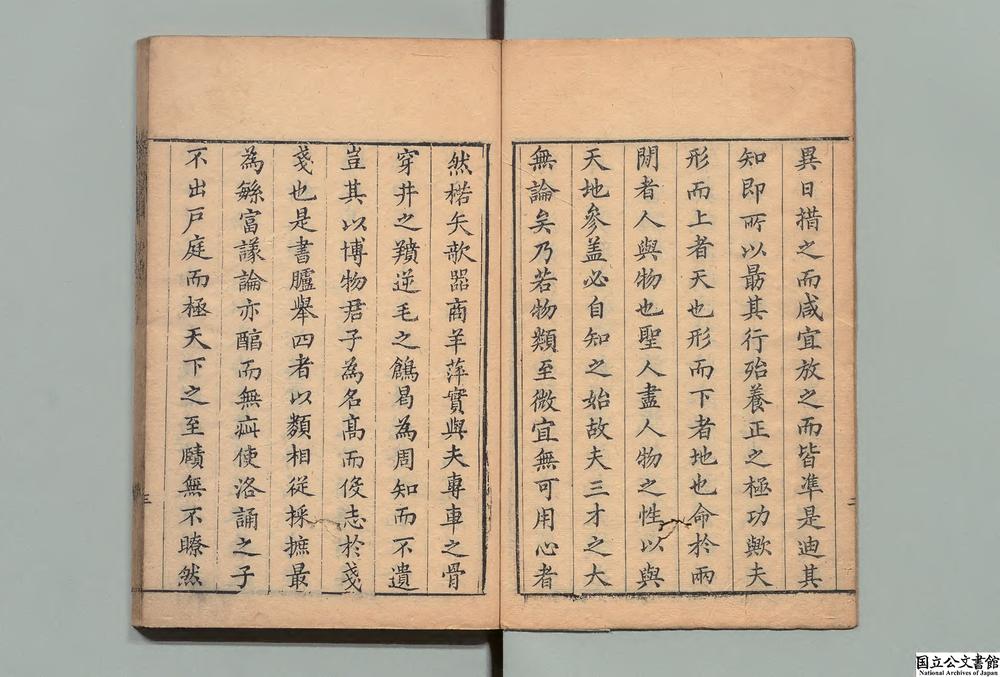 異日措之而咸宜放之而皆凖是迪其
知即所以朂其行殆養正之極功歟夫
形而上者天也形而下者地也命於兩
閒者人與物也聖人盡人物之性以與
天地參盖必自知之始故夫三才之大
無論矣乃若物類至微宜無可用心者
二
然楛矢欹噐商羊萍實與夫專車之骨
穿井之羵逆毛之鶬曷為周知而不遺
豈其以博物君子為名髙而俊志於戔
戔也是書臚舉四者以類相從採摭最
為緐富議論亦醕而無疵使洛誦之子
不出戶庭而極天下之至賾無不瞭然
三
国立公文書館
National Archives of Japan